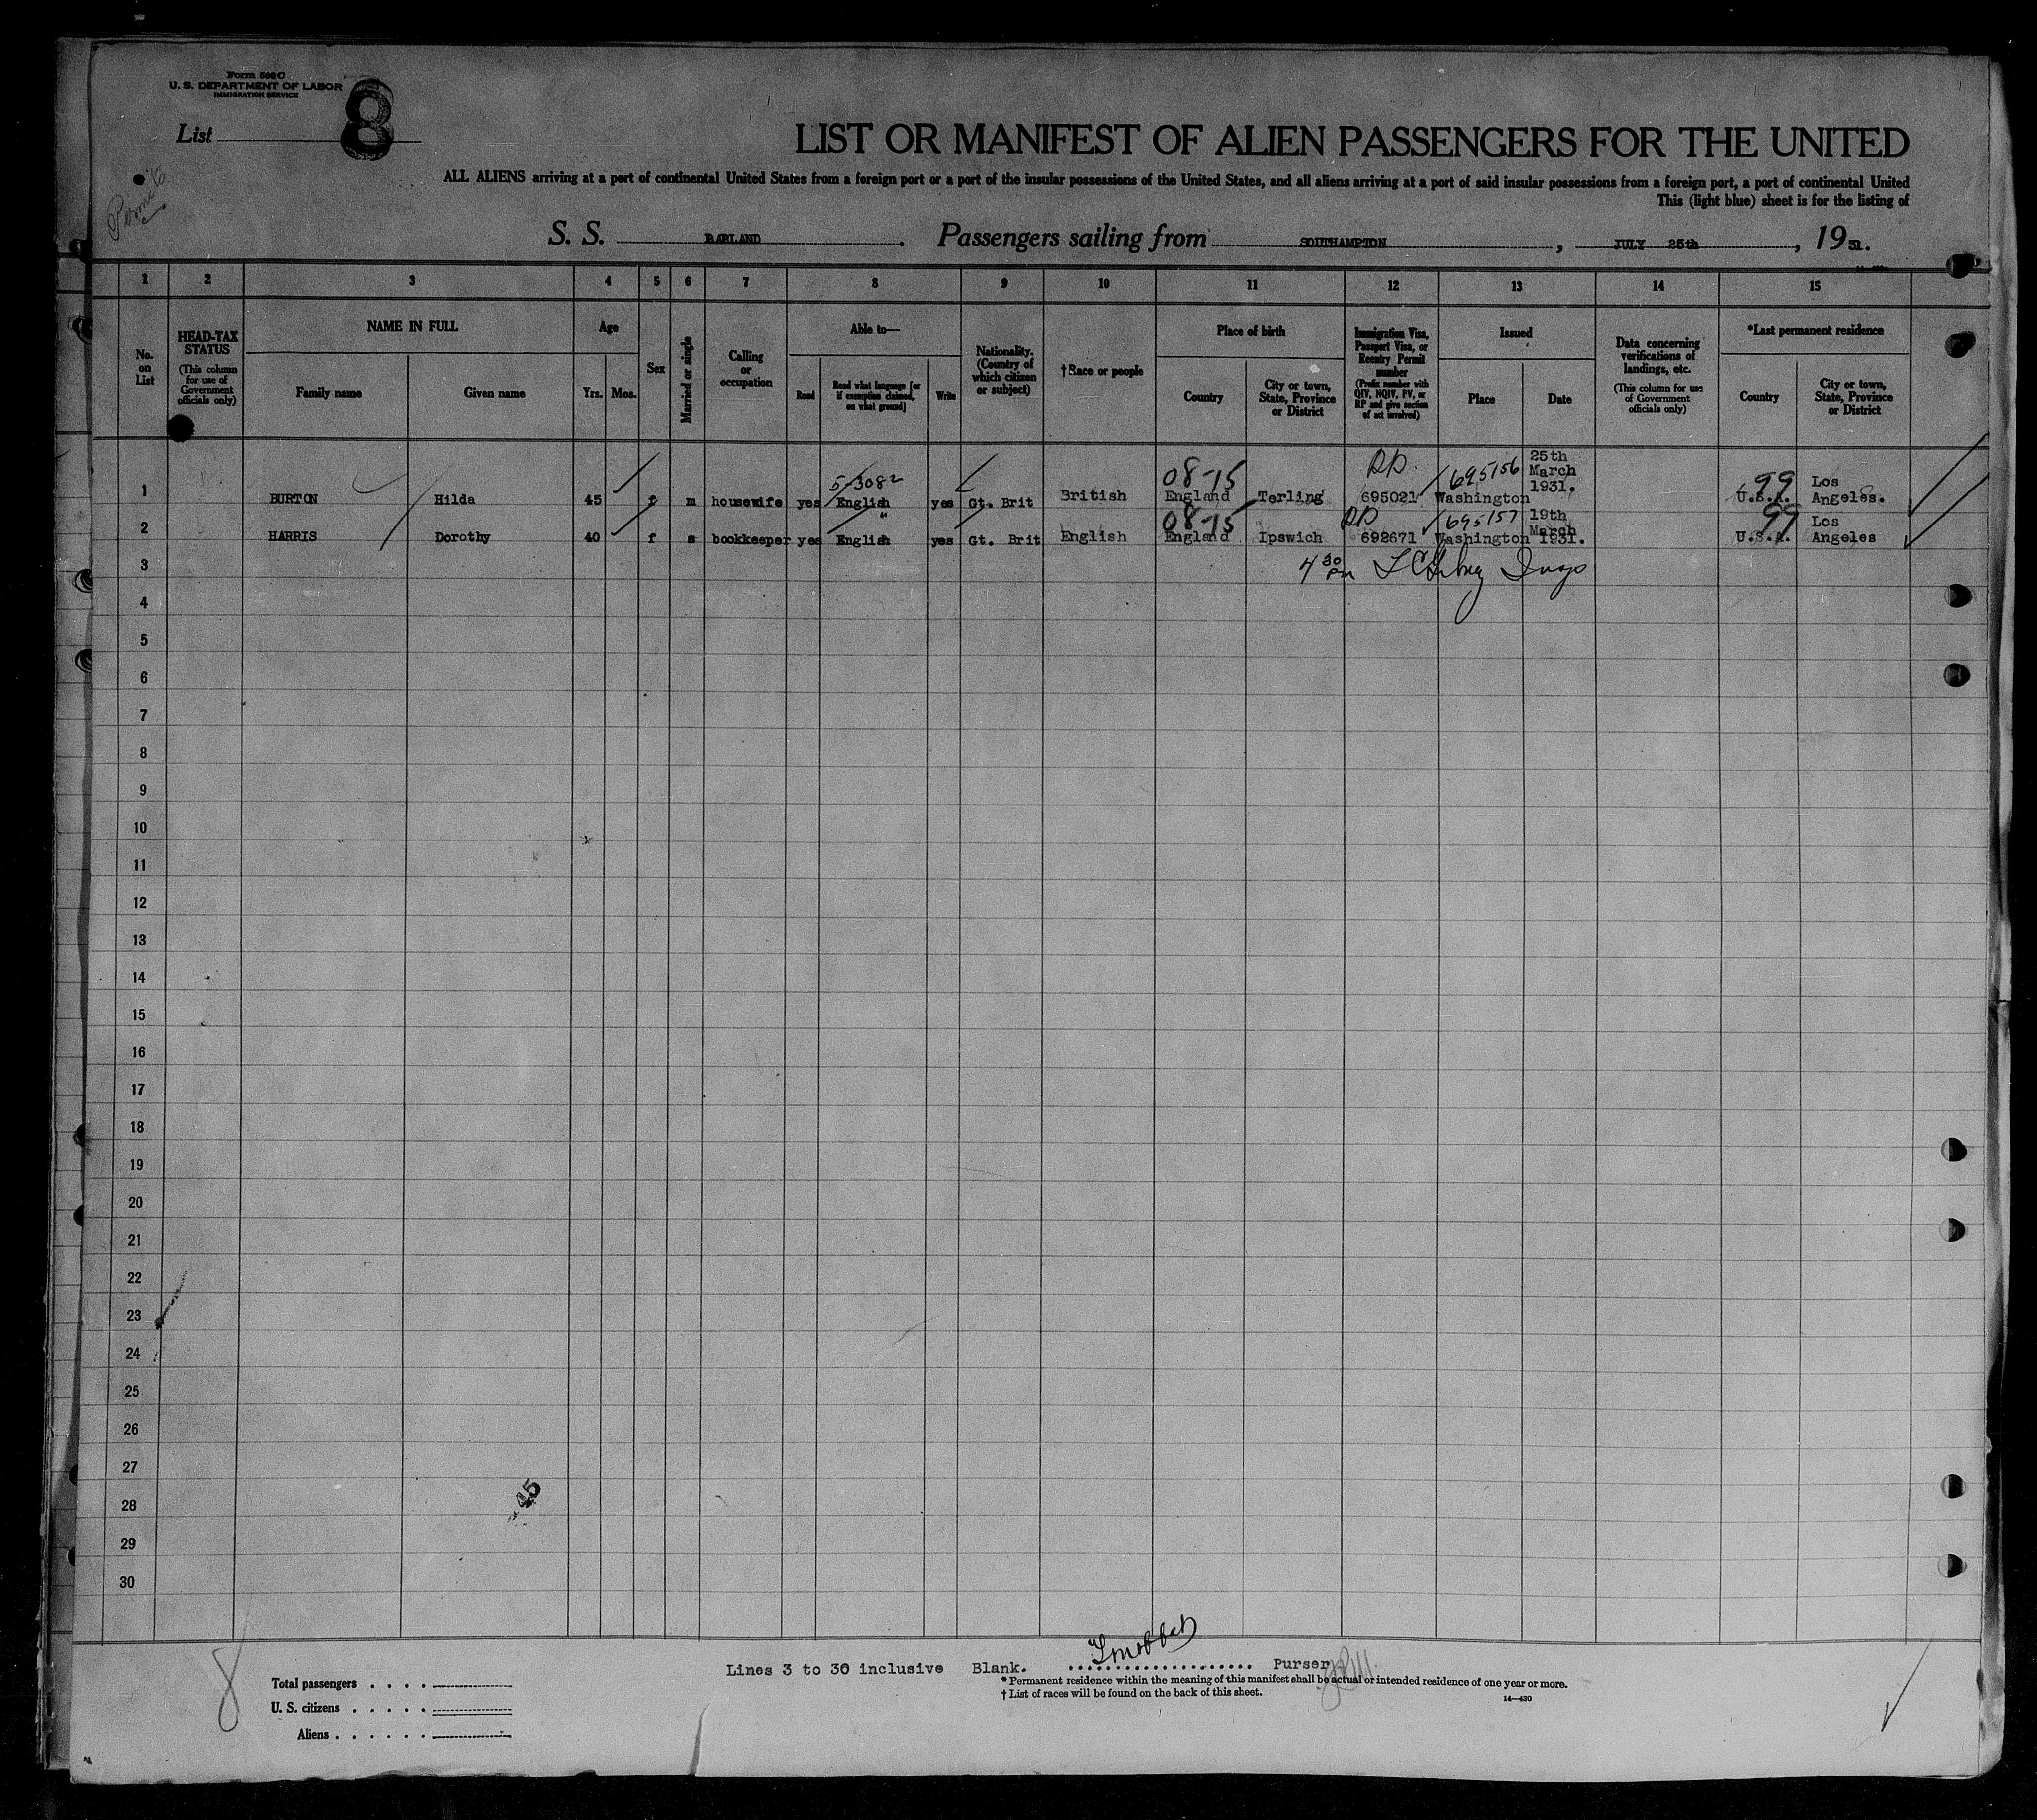 Form 500 C
U. S. DEPARTMENT OF LABOR
IMMIGRATION SERVICE
List 8
LIST OR MANIFEST OF ALIEN PASSENGERS FOR THE UNITED
ALL ALIENS arriving at a port of continental United States from a foreign port or a port of the insular possessions of the United States, and all aliens arriving at a port of said insular possessions from a foreign port, a port of continental United
This (light blue) sheet is for the listing of
Permits
S. S. Passengers sailing from SOUTHAMPTON, JULY 25th, 1931.
1 2 3 4 5 6 7 8 9 10 11 12 13 14 15
No. on List
HEAD-TAX STATUS (This column for use of Government officials only)
NAME IN FULL Family name Given name
Age Yrs. Mos.
Sex
Married or single
Calling or occupation
Able to— Read Read what language [or if exemption claimed, on what ground] Write
Nationality. (Country of which citizen or subject)
†Race or people
Place of birth Country City or town, State, Province or District
Immigration Visa, Passport Visa, or Reentry Permit number (Prefix number with QIV, NQIV, PV, or RP and give section of act involved)
Issued Place Date
Data concerning verifications of landings, etc. (This column for use of Government officials only)
*Last permanent residence Country City or town, State, Province or District
5-3082 08-15 RP. 695156 99
1 BURTON Hilda 45 f m housewife yes English yes Gt. Brit British England Terling 695021 Washington 25th March 1931. U.S.A. Los Angeles.
" 08-15 RP 695157 99
2 HARRIS Dorothy 40 f s bookkeeper yes English yes Gt. Brit English England Ipswich 692671 Washington 19th March 1931. U.S.A. Los Angeles
3 4 30 pm
4
5
6
7
8
9
10
11
12
13
14
15
16
17
18
19
20
21
22
23
24
25
26
27
28 45
29
30
8
Lines 3 to 30 inclusive Blank. Purser
Total passengers
U. S. citizens
Aliens
* Permanent residence within the meaning of this manifest shall be actual or intended residence of one year or more.
† List of races will be found on the back of this sheet.
14—430